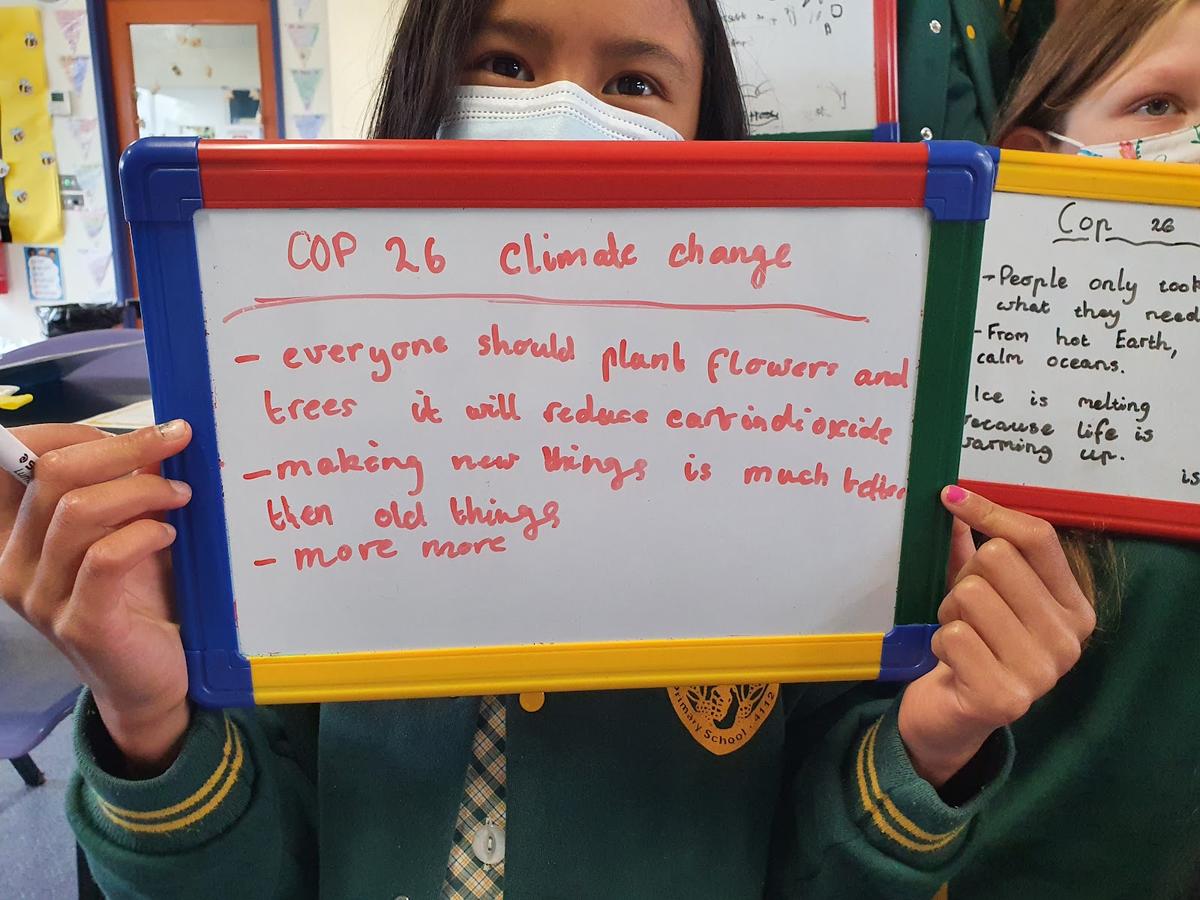 COP 26 climate change
- everyone should plant flowers and
trees it will reduce carbindioxide
- making new things is much better
then old things
- more more
Cop 26
- People only took
what they need
- From hot Earth,
calm oceans.
Ice is melting
because life is
warming up.
is
Primary School · 4112